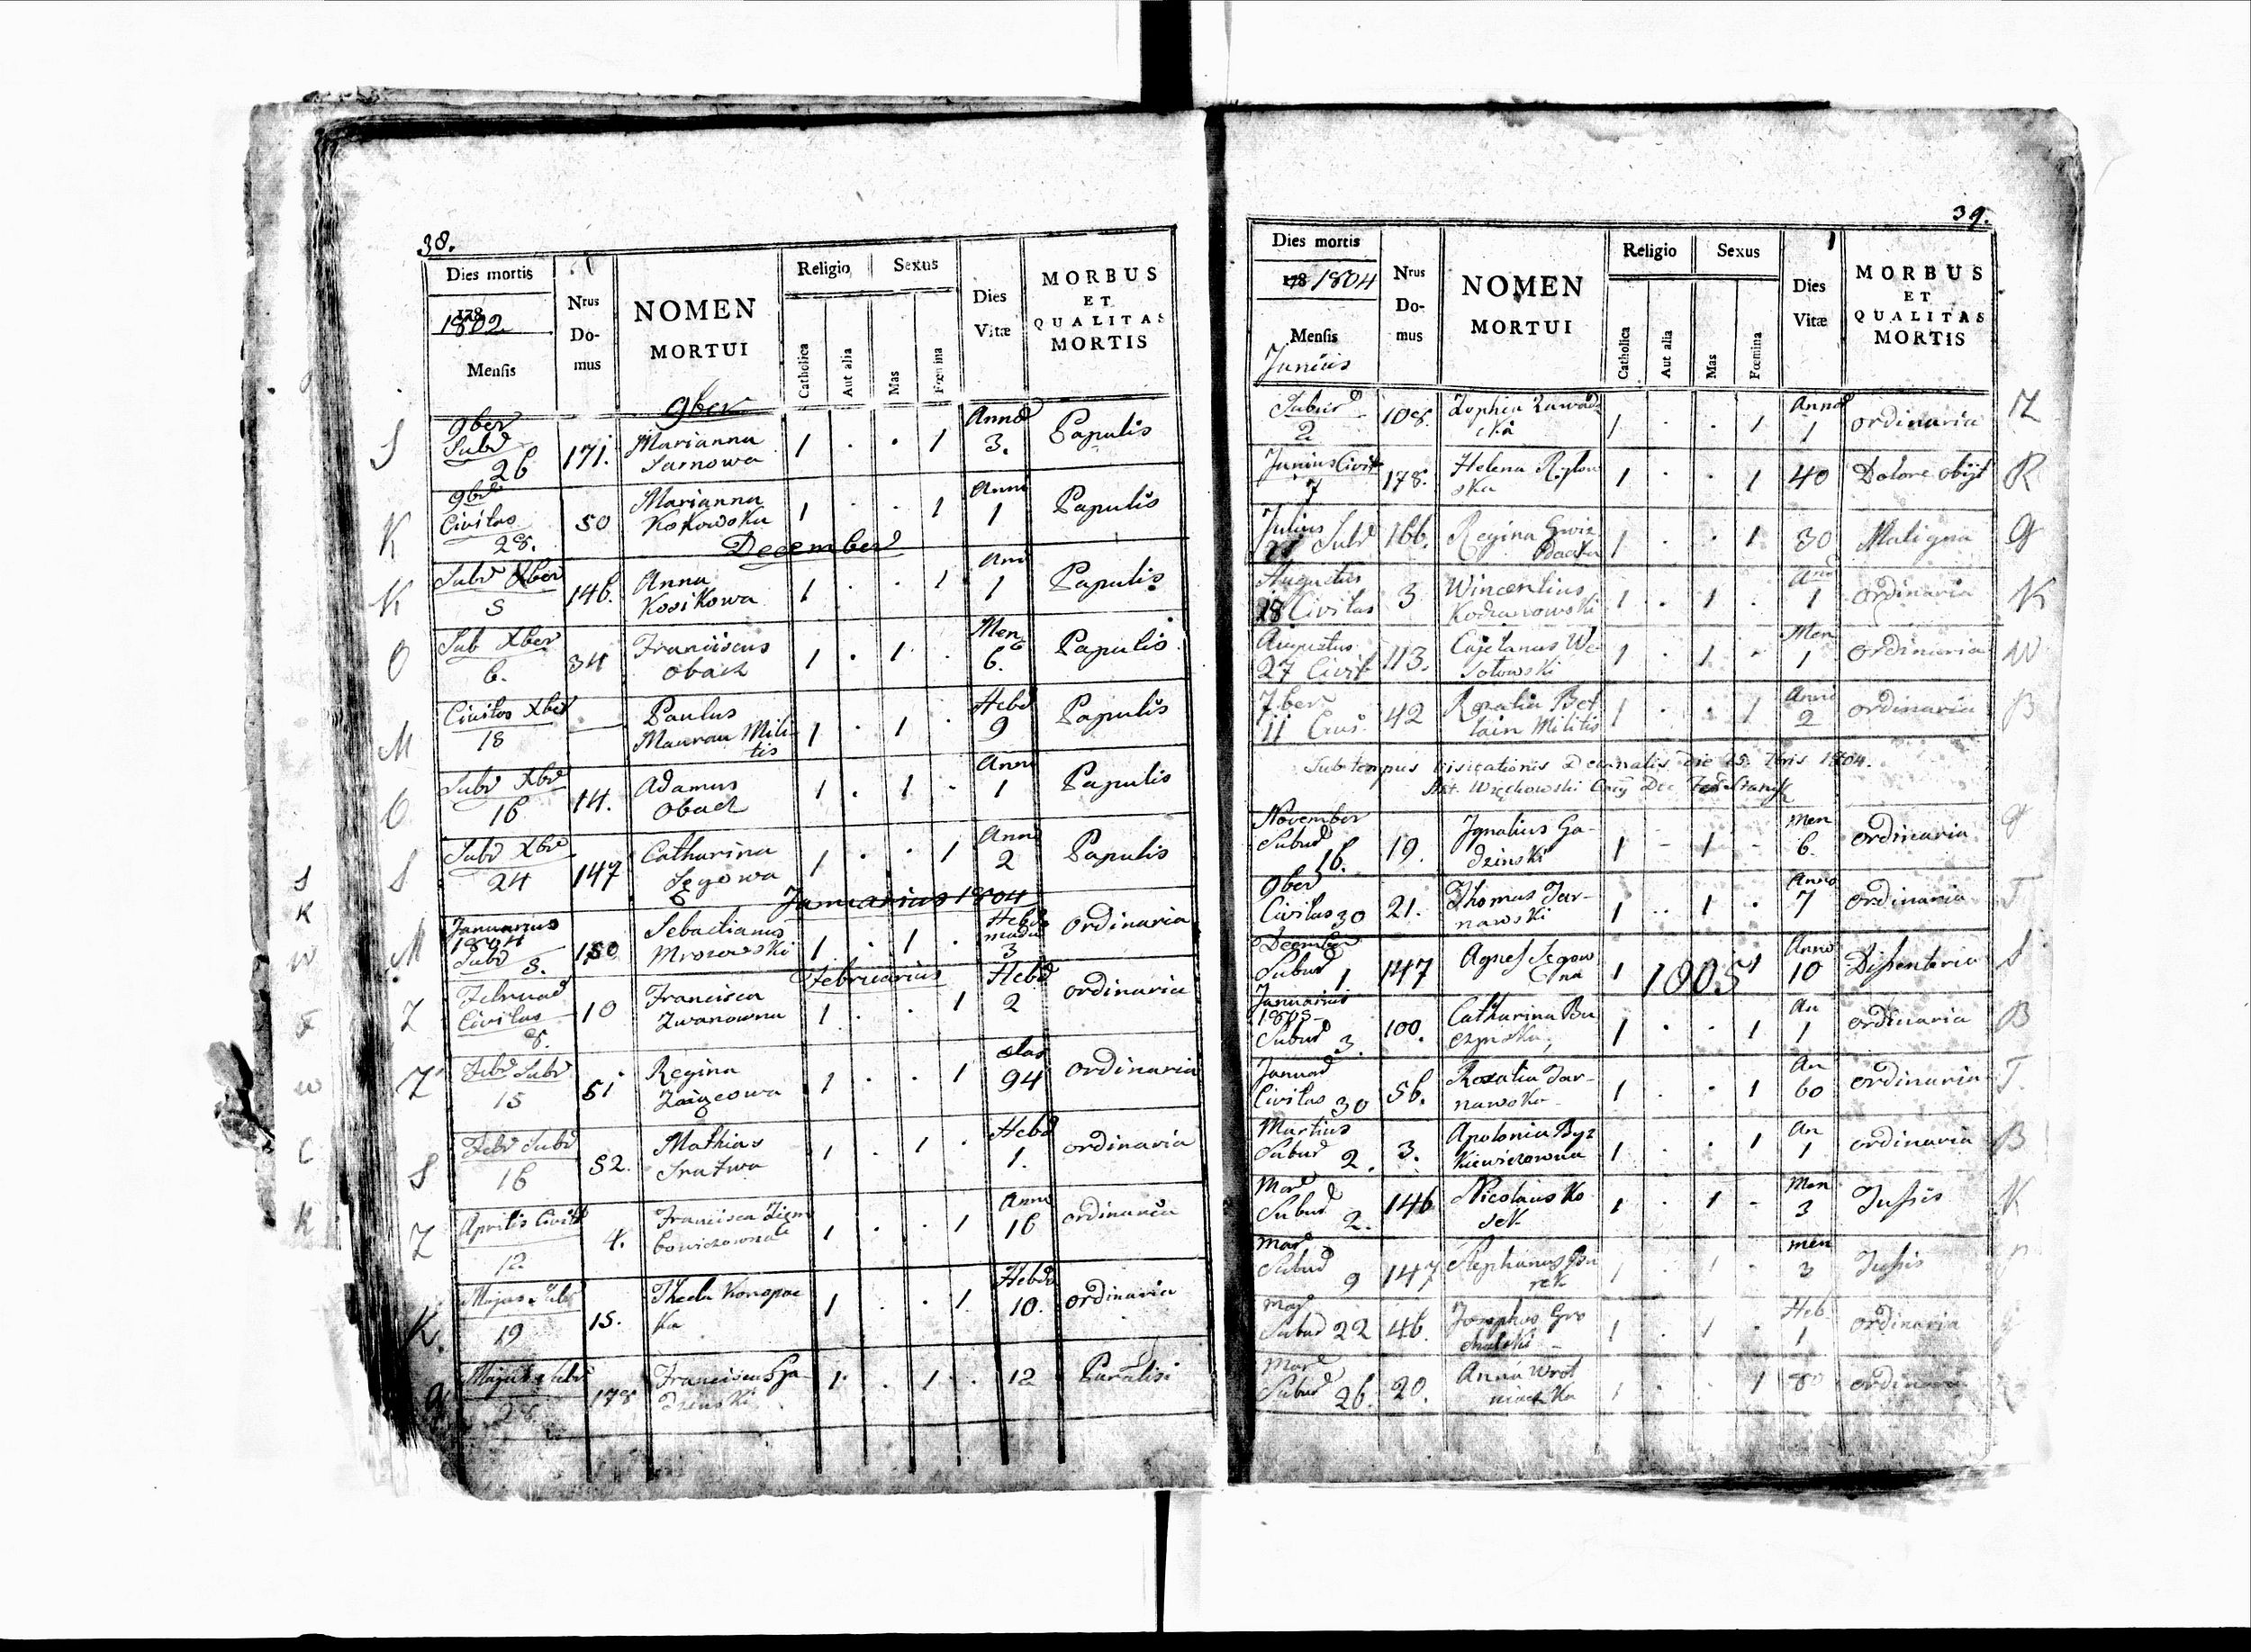 38.
Dies mortis
178
1802
Mensis
Nrus
Do-
mus
NOMEN
MORTUI
Religio
Catholica
Aut alia
Sexus
Mas
Fœmina
Dies
Vitæ
MORBUS
ET
QUALITAS
MORTIS
9ber
S 9ber Subd 26 171. Marianna Sarnowa 1 . . 1 Anno 3. Papulis
K 9br Civitas 28. 50 Marianna 1 . . 1 Anni 1 Papulis
December
K Subd Xber 5 146. Anna Kosikowa 1 . . 1 Ani 1 Papulis
O Sub Xber 6. 34 Franciscus Obach 1 . 1 . Men 6. Papulis
M Civitas Xber 18 Paulus Maurau Mili-
tis 1 . 1 . Hebd 9 Papulis
O Subd Xbr 16 14. Adamus Obach 1 . 1 . Anni 1 Papulis
S Subd Xbr 24 147 Catharina 1 . . 1 Anni 2 Papulis
Januarius 1804
M Januarius 1804 Subd 5. 150 Sebastianus Mrozowski 1 . 1 . Hebdo
mada 3 ordinaria
Februarius
Z Februar Civitas 8. 10 Francisca Zwanowna 1 . . 1 Hebd 2 ordinaria
Z Febr Subd 15 51 Regina 1 . . 1 94 ordinaria
S Febr Subd 16 52. Mathias 1 . 1 . Hebd 1. ordinaria
Z Aprilis Civit 12. 4. Francisca Ziem
bowiczowna 1 . . 1 Anni 16 ordinaria
K. Majus Sub 19 15. Thecla Konopac
Ka 1 . . 1 Hebd 10. ordinaria
G Majus Subd 28 178 Franciscus Ga-
dzinski 1 . 1 . 12 Paralisi
39.
Dies mortis
178 1804
Mensis
Junius
Nrus
Do-
mus
NOMEN
MORTUI
Religio
Catholica
Aut alia
Sexus
Mas
Fœmina
Dies
Vitæ
MORBUS
ET
QUALITAS
MORTIS
Subur 2 108. Zophia Zawadz
cka 1 . . 1 Anno 1 ordinaria Z
Junius Civit 7 178. Helena 1 . . 1 40 Dolore obijt R
Julius Subd 166. Regina Gwiz
dacka 1 . . 1 30 Maligna G
Augustus 28 Civitas 3 Wincentius Kochanowski 1 . 1 . Ano 1 ordinaria K
Augustus 27 Civit 113. Cajetanus We-
solowski 1 . 1 . Men 1 ordinaria W
7ber 11 42 Rozalia Bet
lain Militis 1 . . 1 Anni 2 ordinaria B
Sub tempus visitationis Decanalis die 25. 7bris 1804.
November Subur 16. 19. Ignatius Ga-
dzinski 1 - 1 - Men 6. ordinaria G
9ber Civitas 30 21. Thomas Tar-
nawski 1 .. 1 . Anno 7 ordinaria T
December Subur 1 147 Agnes Segow
Cna 1 1 Anno 10 Disenteria S
1805
Januarius 1805 Subur 3. 100. Catharina Bu
czynska, 1 . . 1 An 1 ordinaria B
Januar Civitas 30 56. Rozalia Tar-
nawska 1 . . 1 An 60 ordinaria T.
Martius Subur 2. 3. Apolonia Byz
Kiewiczowna 1 . . 1 An 1 ordinaria B
Mar Subur 2. 146 Nicolaus Ko
sek 1 . 1 - Men 3 Tussis K
Mar Subur 9 147 Stephanus Bu
rek 1 . 1 . men 3 Tussis
Mar Subur 22 46. Josephus Gro
chulski 1 . 1 . Heb 1 ordinaria G
Mar Subur 26. 20. Anna Wrot
niacka 1 . . 1 80 ordinaria